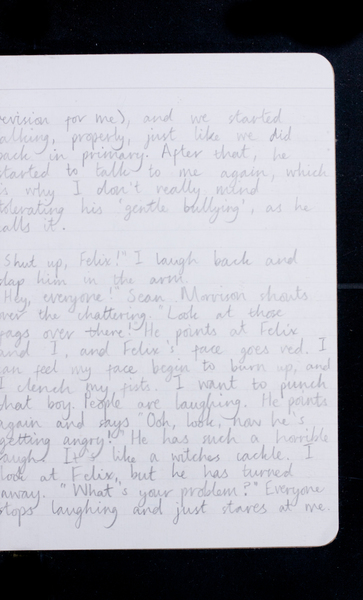 revision for me), and we started
talking, properly, just like we did
back in primary. After that, he
started to talk to me again, which
is why I don't really mind
tolerating his 'gentle bullying', as he
calls it.
"Shut up, Felix!" I laugh back and
slap him in the arm.
"Hey, everyone!" Sean Morrison shouts
over the chattering. "Look at those
fags over there!" He points at Felix
and I, and Felix's face goes red. I
can feel my face begin to burn up, and
I clench my fists. I want to punch
that boy. People are laughing. He points
again and says "Ooh, look, now he's
getting angry!" He has such a horrible
laugh. It's like a witches cackle. I
look at Felix, but he has turned
away. "What's your problem?" Everyone
stops laughing and just stares at me.